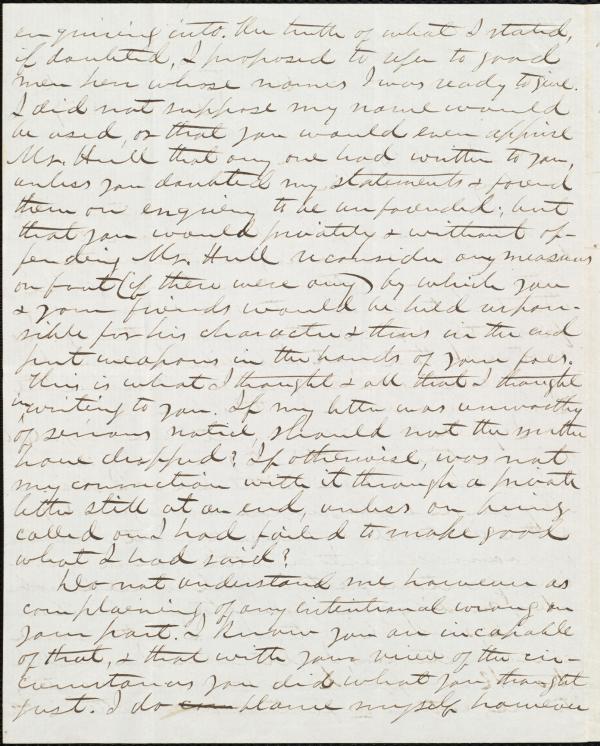 enquiring into. The truth of what I stated,
if doubted, I proposed to refer to good
men here whose names I was ready to give.
I did not suppose my name would
be used, or that you would even apprise
Mr. Hull that any one had written to you,
unless you doubted my statements & found
them on enquiry to be unfounded; but
that you would privately & without of-
fending Mr. Hull reconsider any measures
on foot (if there were any) by which you
& your friends would be held respon-
sible for his character & thus in the end
put weapons in the hands of your foes.
This is what I thought & all that I thought
in writing to you. If my letter was unworthy
of serious notice, should not the matter
have dropped? If otherwise, was not
my connection with it through a private
letter still at an end, unless on being
called on I had failed to make good
what I had said?
Do not understand me however as
complaining of any intentional wrong on
your part. I know you are incapable
of that, & that with your view of the cir-
cumstances you did what you thought
just. I do blame myself however